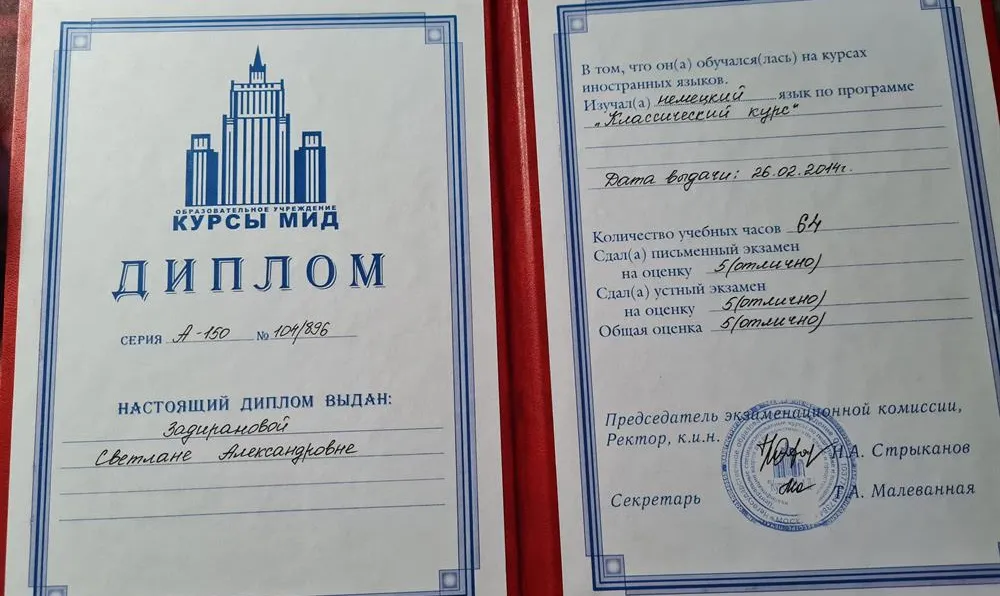 ОБРАЗОВАТЕЛЬНОЕ УЧРЕЖДЕНИЕ
КУРСЫ МИД
ДИПЛОМ
СЕРИЯ А-150 № 104/896
НАСТОЯЩИЙ ДИПЛОМ ВЫДАН:
Задирановой
Светлане Александровне
В том, что он(а) обучался(лась) на курсах
иностранных языков.
Изучал(а) немецкий язык по программе
"Классический курс"
Дата выдачи: 26.02.2014г.
Количество учебных часов 64
Сдал(а) письменный экзамен
на оценку 5(отлично)
Сдал(а) устный экзамен
на оценку 5(отлично)
Общая оценка 5(отлично)
Председатель экзаменационной комиссии,
Ректор, к.и.н. Н.А. Стрыканов
Секретарь Т.А. Малеванная